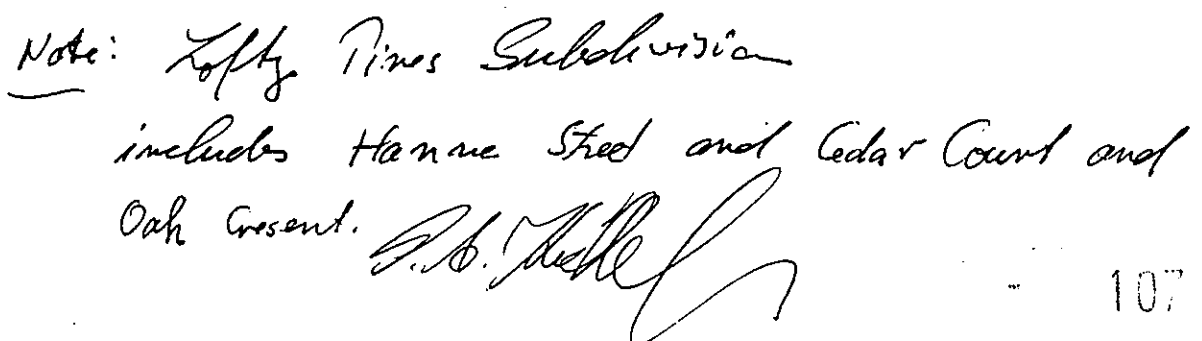 Note: Lofty Pines Subdivision
includes Hanne Street and Cedar Court and
Oak Cresent.
107